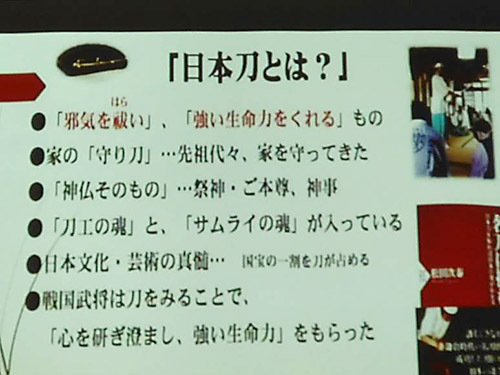 「日本刀とは？」
●「邪気を祓い」、「強い生命力をくれる」もの
はら
●家の「守り刀」…先祖代々、家を守ってきた
●「神仏そのもの」…祭神・ご本尊、神事
●「刀工の魂」と、「サムライの魂」が入っている
●日本文化・芸術の真髄… 国宝の一割を刀が占める
●戦国武将は刀をみることで、
「心を研ぎ澄まし、強い生命力」をもらった
松田次泰